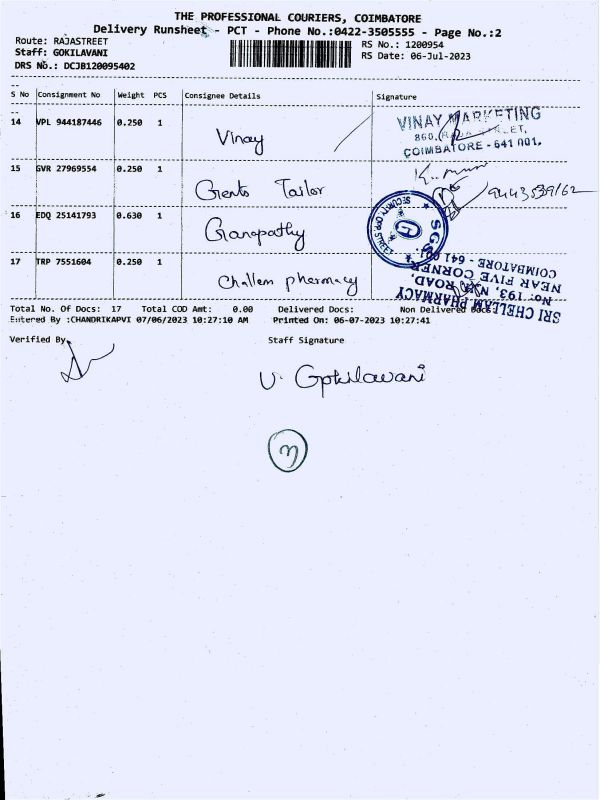 THE PROFESSIONAL COURIERS, COIMBATORE
Delivery Runsheet - PCT - Phone No.:0422-3505555 - Page No.:2
Route: RAJASTREET
Staff: GOKILAVANI
DRS No.: DCJB120095402
RS No.: 1200954
RS Date: 06-Jul-2023
S No Consignment No Weight PCS Consignee Details Signature
14 VPL 944187446 0.250 1 Vinay
VINAY MARKETING
860, RAJA STREET,
COIMBATORE - 641 001.
15 GVR 27969554 0.250 1 Gents Tailor
9443539162
16 EDQ 25141793 0.630 1 Ganapathy
SGS
SECURITY, OPP. STREET
17 TRP 7551604 0.250 1 Challem pharmacy
SRI CHELLAM PHARMACY
No: 193, N.H. ROAD,
NEAR FIVE CORNER
COIMBATORE - 641 001.
Total No. Of Docs: 17 Total COD Amt: 0.00 Delivered Docs: Non Delivered Docs:
Entered By :CHANDRIKAPVI 07/06/2023 10:27:10 AM Printed On: 06-07-2023 10:27:41
Verified By
Staff Signature
V. Gokilavani